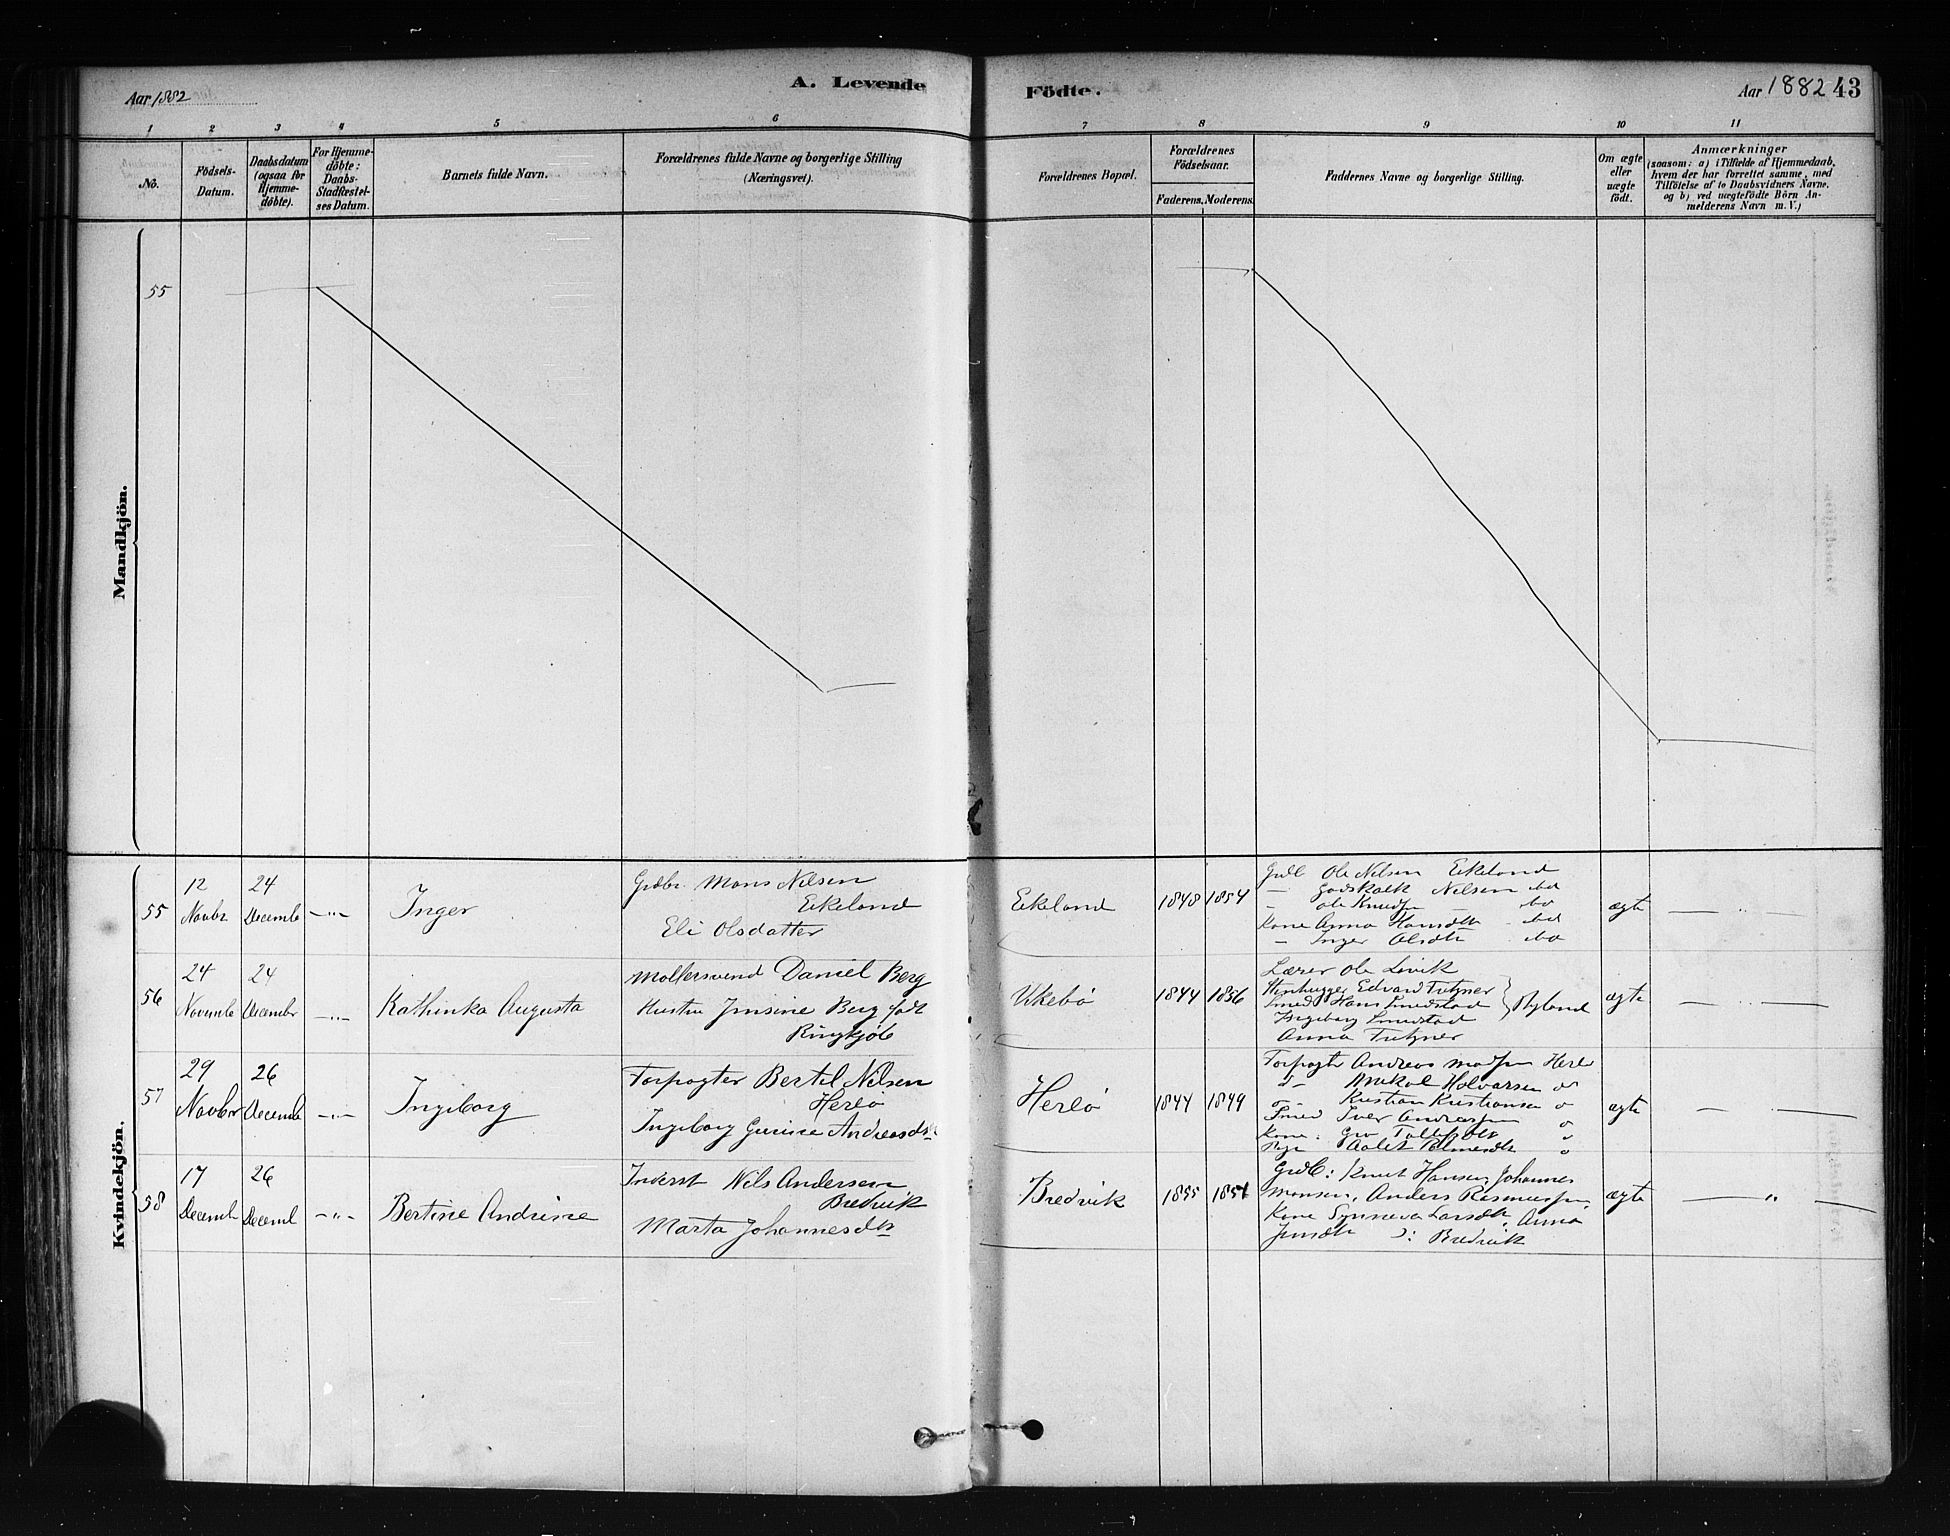 Aar 1882
A. Levende
Födte.
Aar 1882 43
1 2 3 4 5 6 7 8 9 10 11
No.
Födsels-
Datum.
Daabsdatum
(ogsaa for
Hjemme-
döbte).
For Hjemme-
döbte:
Daabs-
Stadfæstel-
ses Datum.
Barnets fulde Navn.
Forældrenes fulde Navne og borgerlige Stilling
(Næringsvei).
Forældrenes Bopæl.
Forældrenes
Födselsaar.
Faderens. Moderens.
Faddernes Navne og borgerlige Stilling.
Om ægte
eller
uægte
födt.
Anmærkninger
(saasom: a) i Tilfælde af Hjemmedaab,
hvem der har forrettet samme, med
Tilföielse af to Daabsvidners Navne.
og b) ved uægtefödte Börn An-
melderens Navn m. V.)
Mandkjön.
55
Kvindekjön.
55
12
Novbr
24
Decemb
Inger
Grdbr. Mons Nilsen
Eikeland
Eli Olsdatter
Eikeland
1848 1854
Ole Nilsen Eikeland
Godskalk Nilsen
Ole
Kone Anna Hansdtr
Inger Olsdtr
ægte
56
24
Novemb
24
Decembr
Kathinka Augusta
Møllersvend Daniel Berg
Hustru Jensine Berg født
Ringkjøb
Ukebø
1844 1856
Lærer Ole
Stenhugger Edvard
Smed Hans Smedstad
Ingeborg Smedstad
Anna
Ryland
ægte
57
29
Novbr
26
Decemb
Ingeborg
Forpagter Bertel Nilsen
Herlø
Ingeborg Gurine Andreasdtr
Herlø
1844 1849
Forpagtr Andreas Herlø
Halvarsen
Kristian Kristiansen
Smed Iver Andreassen
Kone
ægte
58
17
Decemb
26
Decemb
Bertine Andrine
Inderst Nils Andersen
Bredvik
Marta Johannesdtr
Bredvik
1855 1851
Grdb: Knut Hansen, Johannes
Monsen, Anders Rasmussen,
Kone Synneva Larsdtr, Anna
Jensdtr Bredvik
ægte